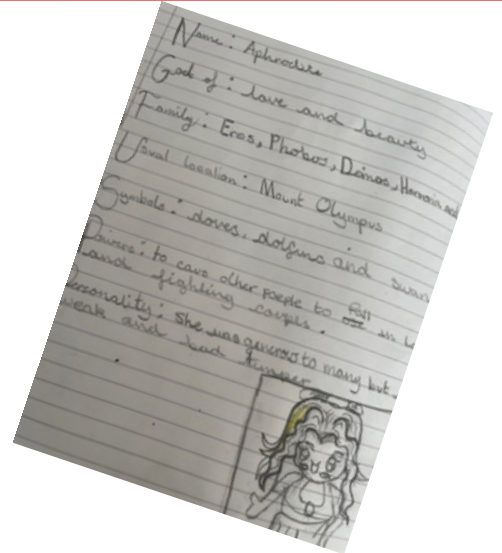 Name: Aphrodite
God of: love and beauty
Family: Eros, Phobos, Deimos, Harmonia
Usual location: Mount Olympus
Symbols: doves, dolfins and swan
to caus other people to fall in
and fighting
Personality: She was generos to many but
weak and bad temper